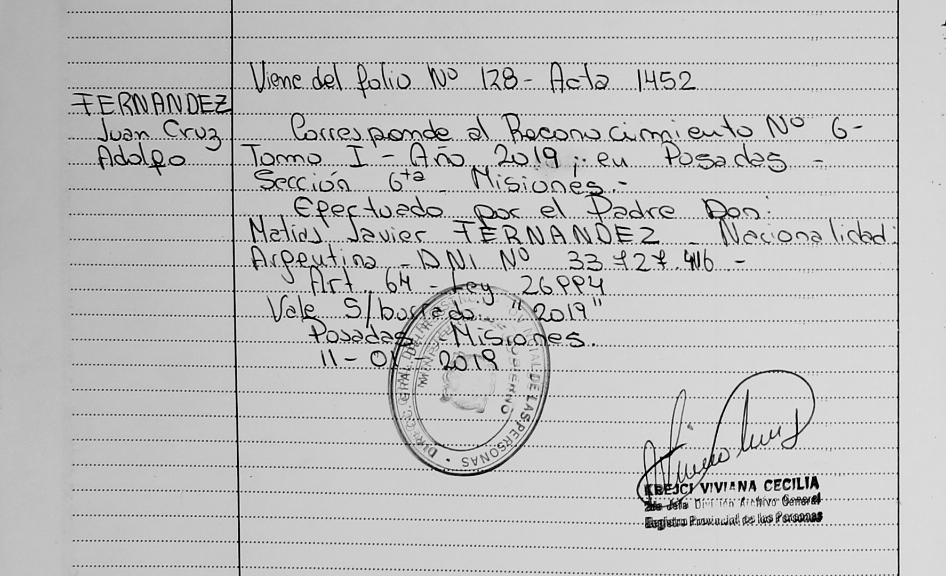 Viene del folio Nº 128 - Acta 1452
FERNANDEZ
Juan Cruz
Adolfo
Corresponde al Reconocimiento Nº 6-
Tomo I - Año 2019; en Posadas -
Sección 6ta Misiones.-
Efectuado por el Padre Don:
Matias Javier FERNANDEZ - Nacionalidad:
Argentina - DNI Nº 33727.416 -
Art. 64 - Ley 26994
Vale S/borrado: "2019"
Posadas Misiones.
11 - 2019
DE LAS PERSONAS
KREJCI VIVIANA CECILIA
2da Jefa División Archivo General
Registro Provincial de las Personas